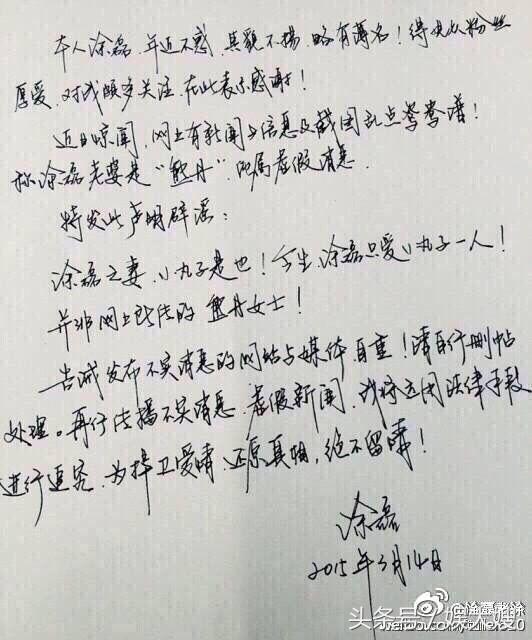 本人涂磊,年近不惑,其貌不扬,略有薄名!得也从粉丝
厚爱,对我颇多关注,在此表示感谢!
近日惊闻,网上有新闻与信息及截图乱点鸳鸯谱!
称涂磊老婆是“熊丹”,所属虚假消息.
特发此声明辟谣:
涂磊之妻,小丸子是也!今生,涂磊只爱小丸子一人!
并非网上所传的熊丹女士!
告诫发布不实消息的网站与媒体自重!请自行删帖
处理。再行传播不实消息、虚假新闻,我将运用法律手段
进行追究,为捍卫爱情,还原真相,绝不留情!
涂磊
2015年3月14日
@涂磊老涂
头条号
weibo.com/tulei520